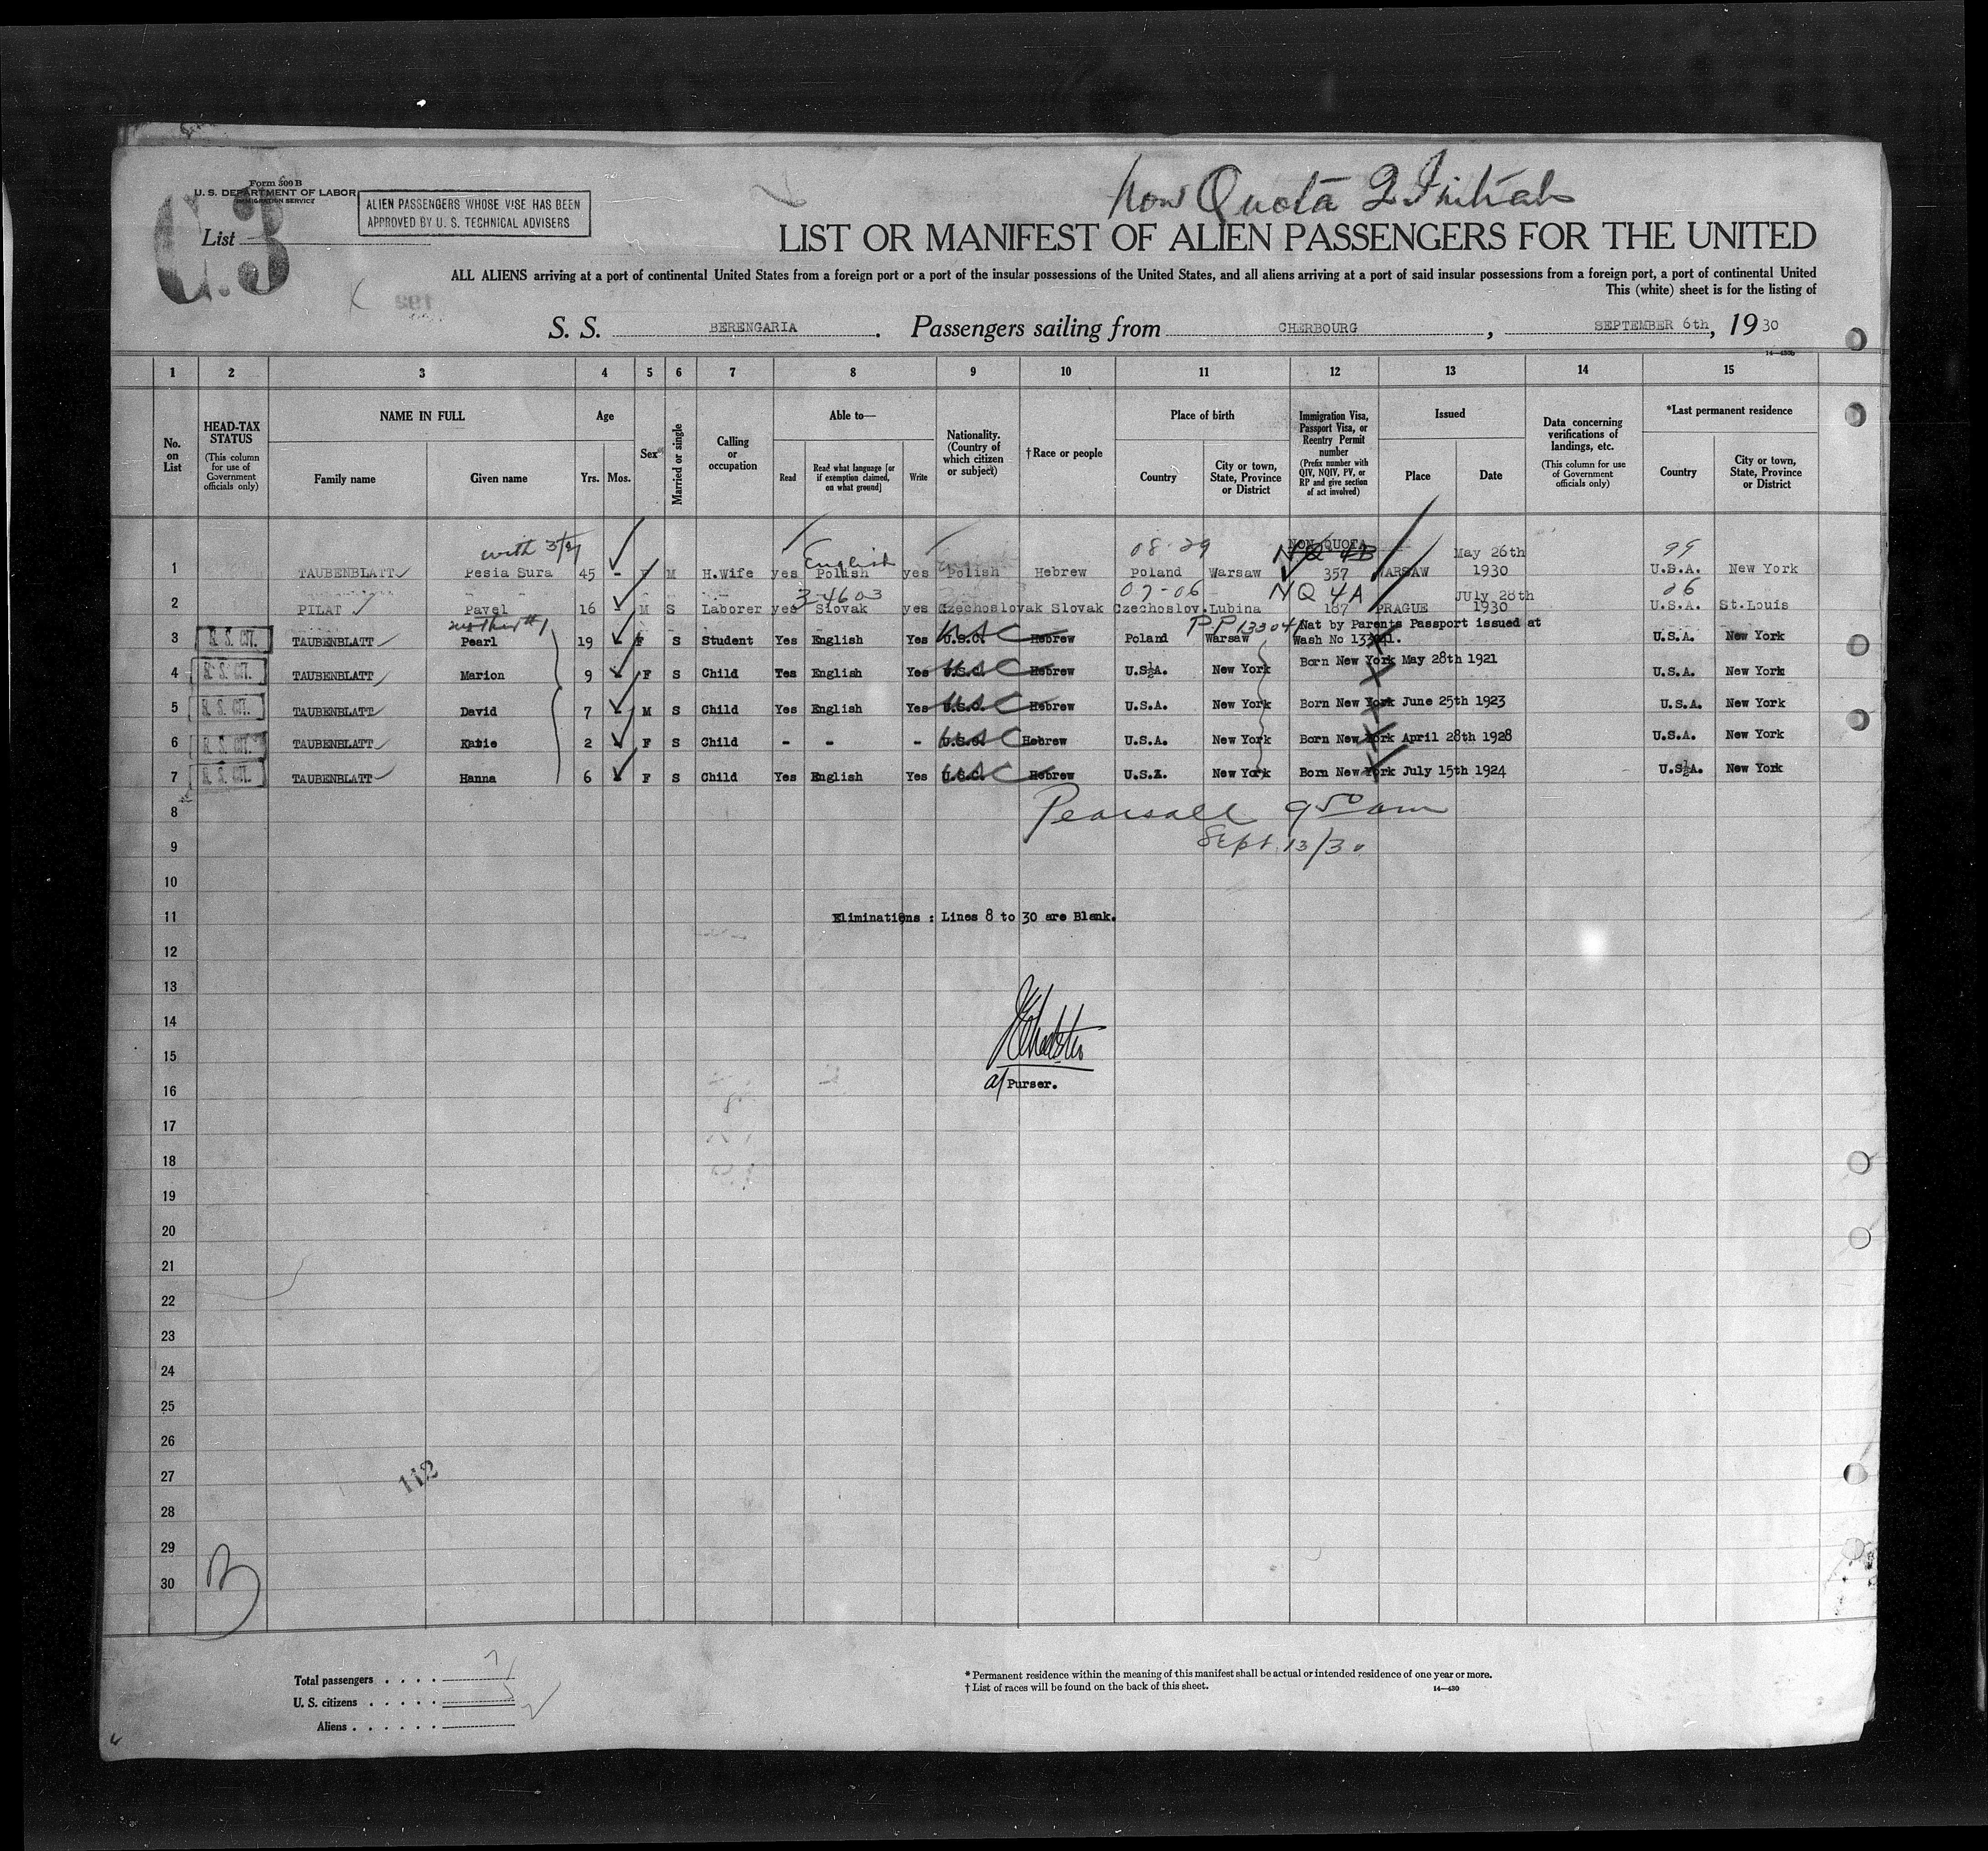 Form 500 B
U. S. DEPARTMENT OF LABOR
IMMIGRATION SERVICE
ALIEN PASSENGERS WHOSE VISE HAS BEEN
APPROVED BY U. S. TECHNICAL ADVISERS
List
C.3
Non Quota 2 Initials
LIST OR MANIFEST OF ALIEN PASSENGERS FOR THE UNITED
ALL ALIENS arriving at a port of continental United States from a foreign port or a port of the insular possessions of the United States, and all aliens arriving at a port of said insular possessions from a foreign port, a port of continental United
This (white) sheet is for the listing of
S. S. BERENGARIA. Passengers sailing from CHERBOURG, SEPTEMBER 6th, 1930
14—430b
1 2 3 4 5 6 7 8 9 10 11 12 13 14 15
No. on List
HEAD-TAX STATUS (This column for use of Government officials only)
NAME IN FULL
Family name Given name
Age
Yrs. Mos.
Sex
Married or single
Calling or occupation
Able to—
Read Read what language [or if exemption claimed, on what ground] Write
Nationality. (Country of which citizen or subject)
† Race or people
Place of birth
Country City or town, State, Province or District
Immigration Visa, Passport Visa, or Reentry Permit number (Prefix number with QIV, NQIV, PV, or RP and give section of act involved)
Issued
Place Date
Data concerning verifications of landings, etc. (This column for use of Government officials only)
*Last permanent residence
Country City or town, State, Province or District
with 3/7 English 08-29 NON QUOTA NQ 4B May 26th 99
1 TAUBENBLATT Pesia Sura 45 - F M H.Wife yes Polish yes Polish Hebrew Poland Warsaw 357 WARSAW 1930 U.S.A. New York
3-4603 07-06 NQ 4A July 28th 06
2 PILAT Pavel 16 - M S Laborer yes Slovak yes Czechoslovak Slovak Czechoslov. Lubina 187 PRAGUE 1930 U.S.A. St.Louis
mother #1 P.P 133041 Nat by Parents Passport issued at
3 U. S. CIT. TAUBENBLATT Pearl 19 F S Student Yes English Yes U.S.C. USC Hebrew Poland Warsaw Wash No 133041. U.S.A. New York
4 U. S. CIT. TAUBENBLATT Marion 9 F S Child Yes English Yes U.S.C. USC Hebrew U.S.A. New York Born New York May 28th 1921 U.S.A. New York
5 U. S. CIT. TAUBENBLATT David 7 M S Child Yes English Yes U.S.C. USC Hebrew U.S.A. New York Born New York June 25th 1923 U.S.A. New York
6 U. S. CIT. TAUBENBLATT Katie 2 F S Child - - - U.S.C. USC Hebrew U.S.A. New York Born New York April 28th 1928 U.S.A. New York
7 U. S. CIT. TAUBENBLATT Hanna 6 F S Child Yes English Yes U.S.C. USC Hebrew U.S.A. New York Born New York July 15th 1924 U.S.A. New York
8 Pearsall 9 50 am
9 Sept 13/30
10
11 Eliminations : Lines 8 to 30 are Blank.
12
13
14
15
16 Purser.
17
18
19
20
21
22
23
24
25
26
27 112
28
29
30
Total passengers . . . . 7
U. S. citizens . . . . . 5
Aliens . . . . . . 2
* Permanent residence within the meaning of this manifest shall be actual or intended residence of one year or more.
† List of races will be found on the back of this sheet. 14—430